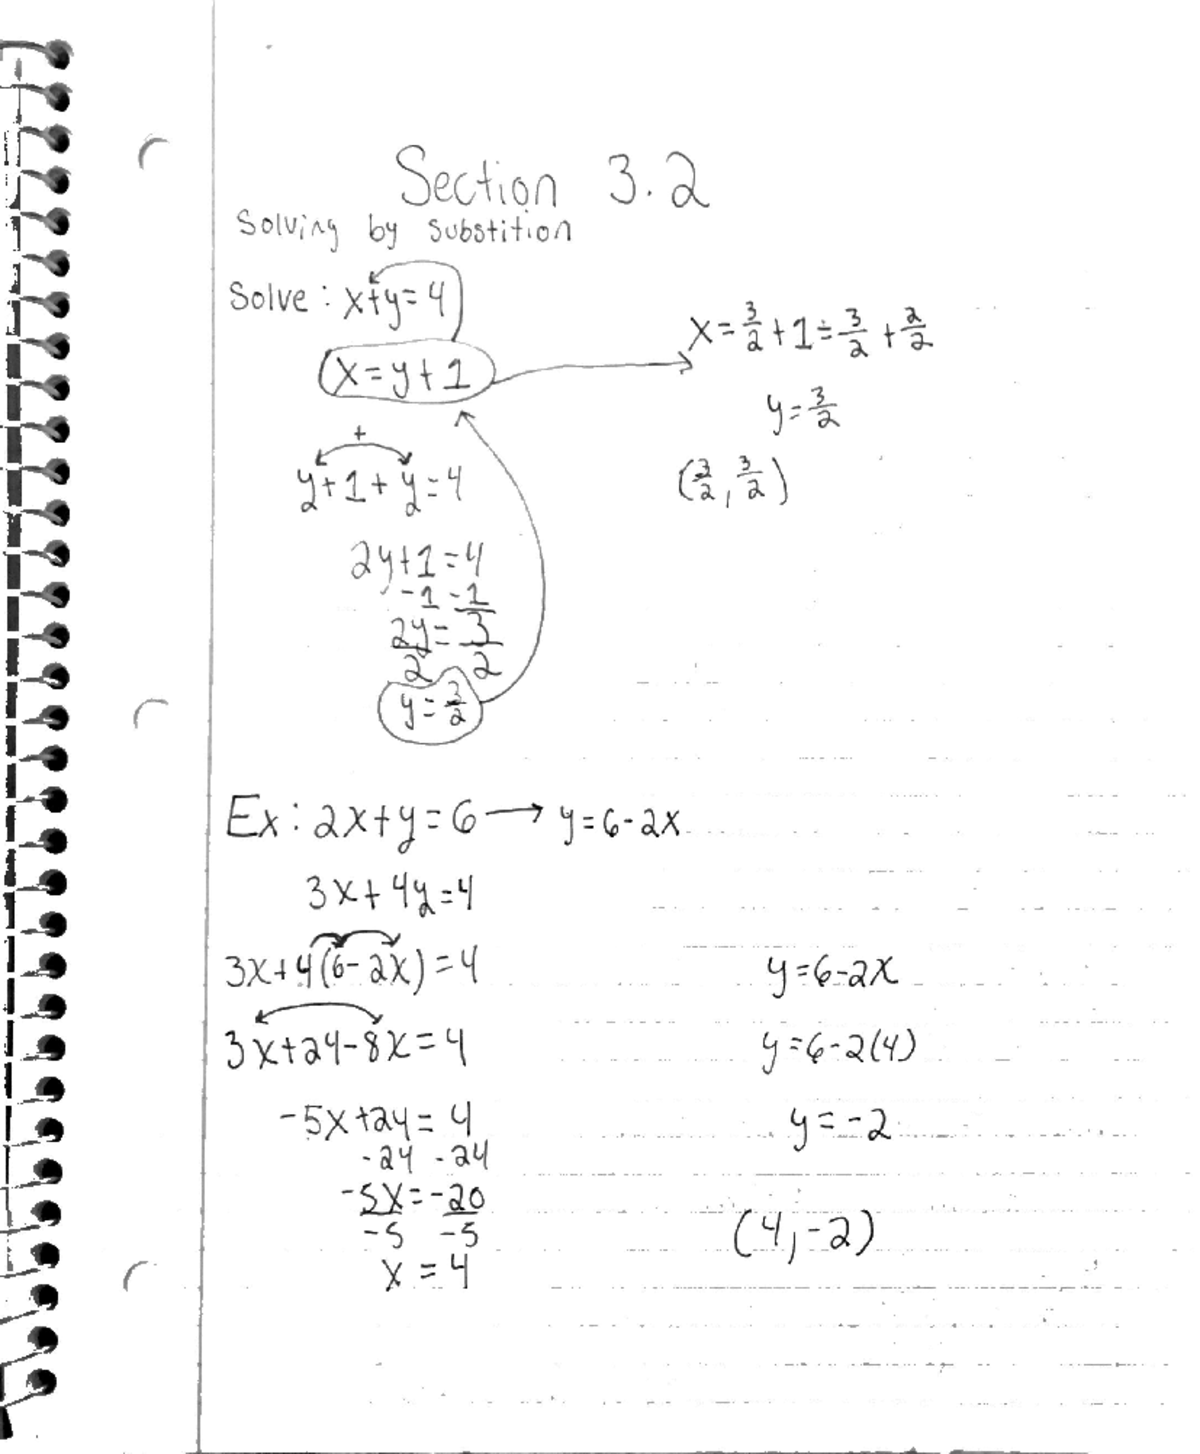 Section 3.2
Solving by substition
Solve: x+y=4
x=y+1
+
y+1+y=4
2y+1=4
-1 -1
2y=3
2 2
y=3/2
x=3/2+1=3/2+2/2
y=3/2
(3/2, 3/2)
Ex: 2x+y=6 → y=6-2x
3x+4y=4
3x+4(6-2x)=4
3x+24-8x=4
-5x+24=4
-24 -24
-5x=-20
-5 -5
x=4
y=6-2x
y=6-2(4)
y=-2
(4,-2)